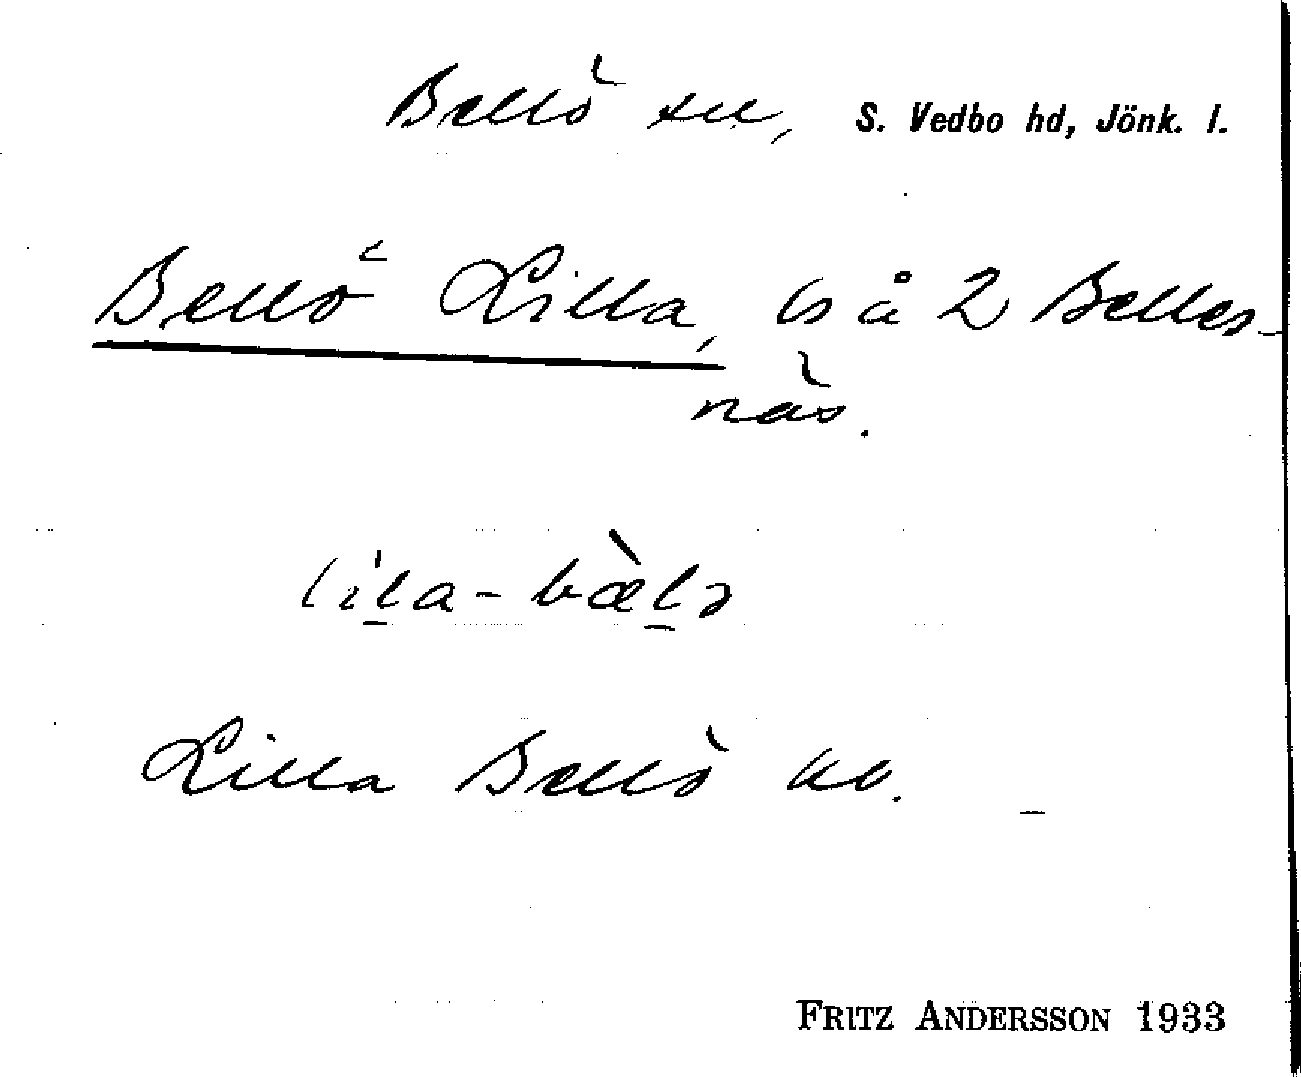 Bellö sn, S. Vedbo hd, Jönk. l.
Bellö Lilla, ls å 2 Belles-
näs.
lila-bælə
Lilla Bellö kb.
FRITZ ANDERSSON 1933